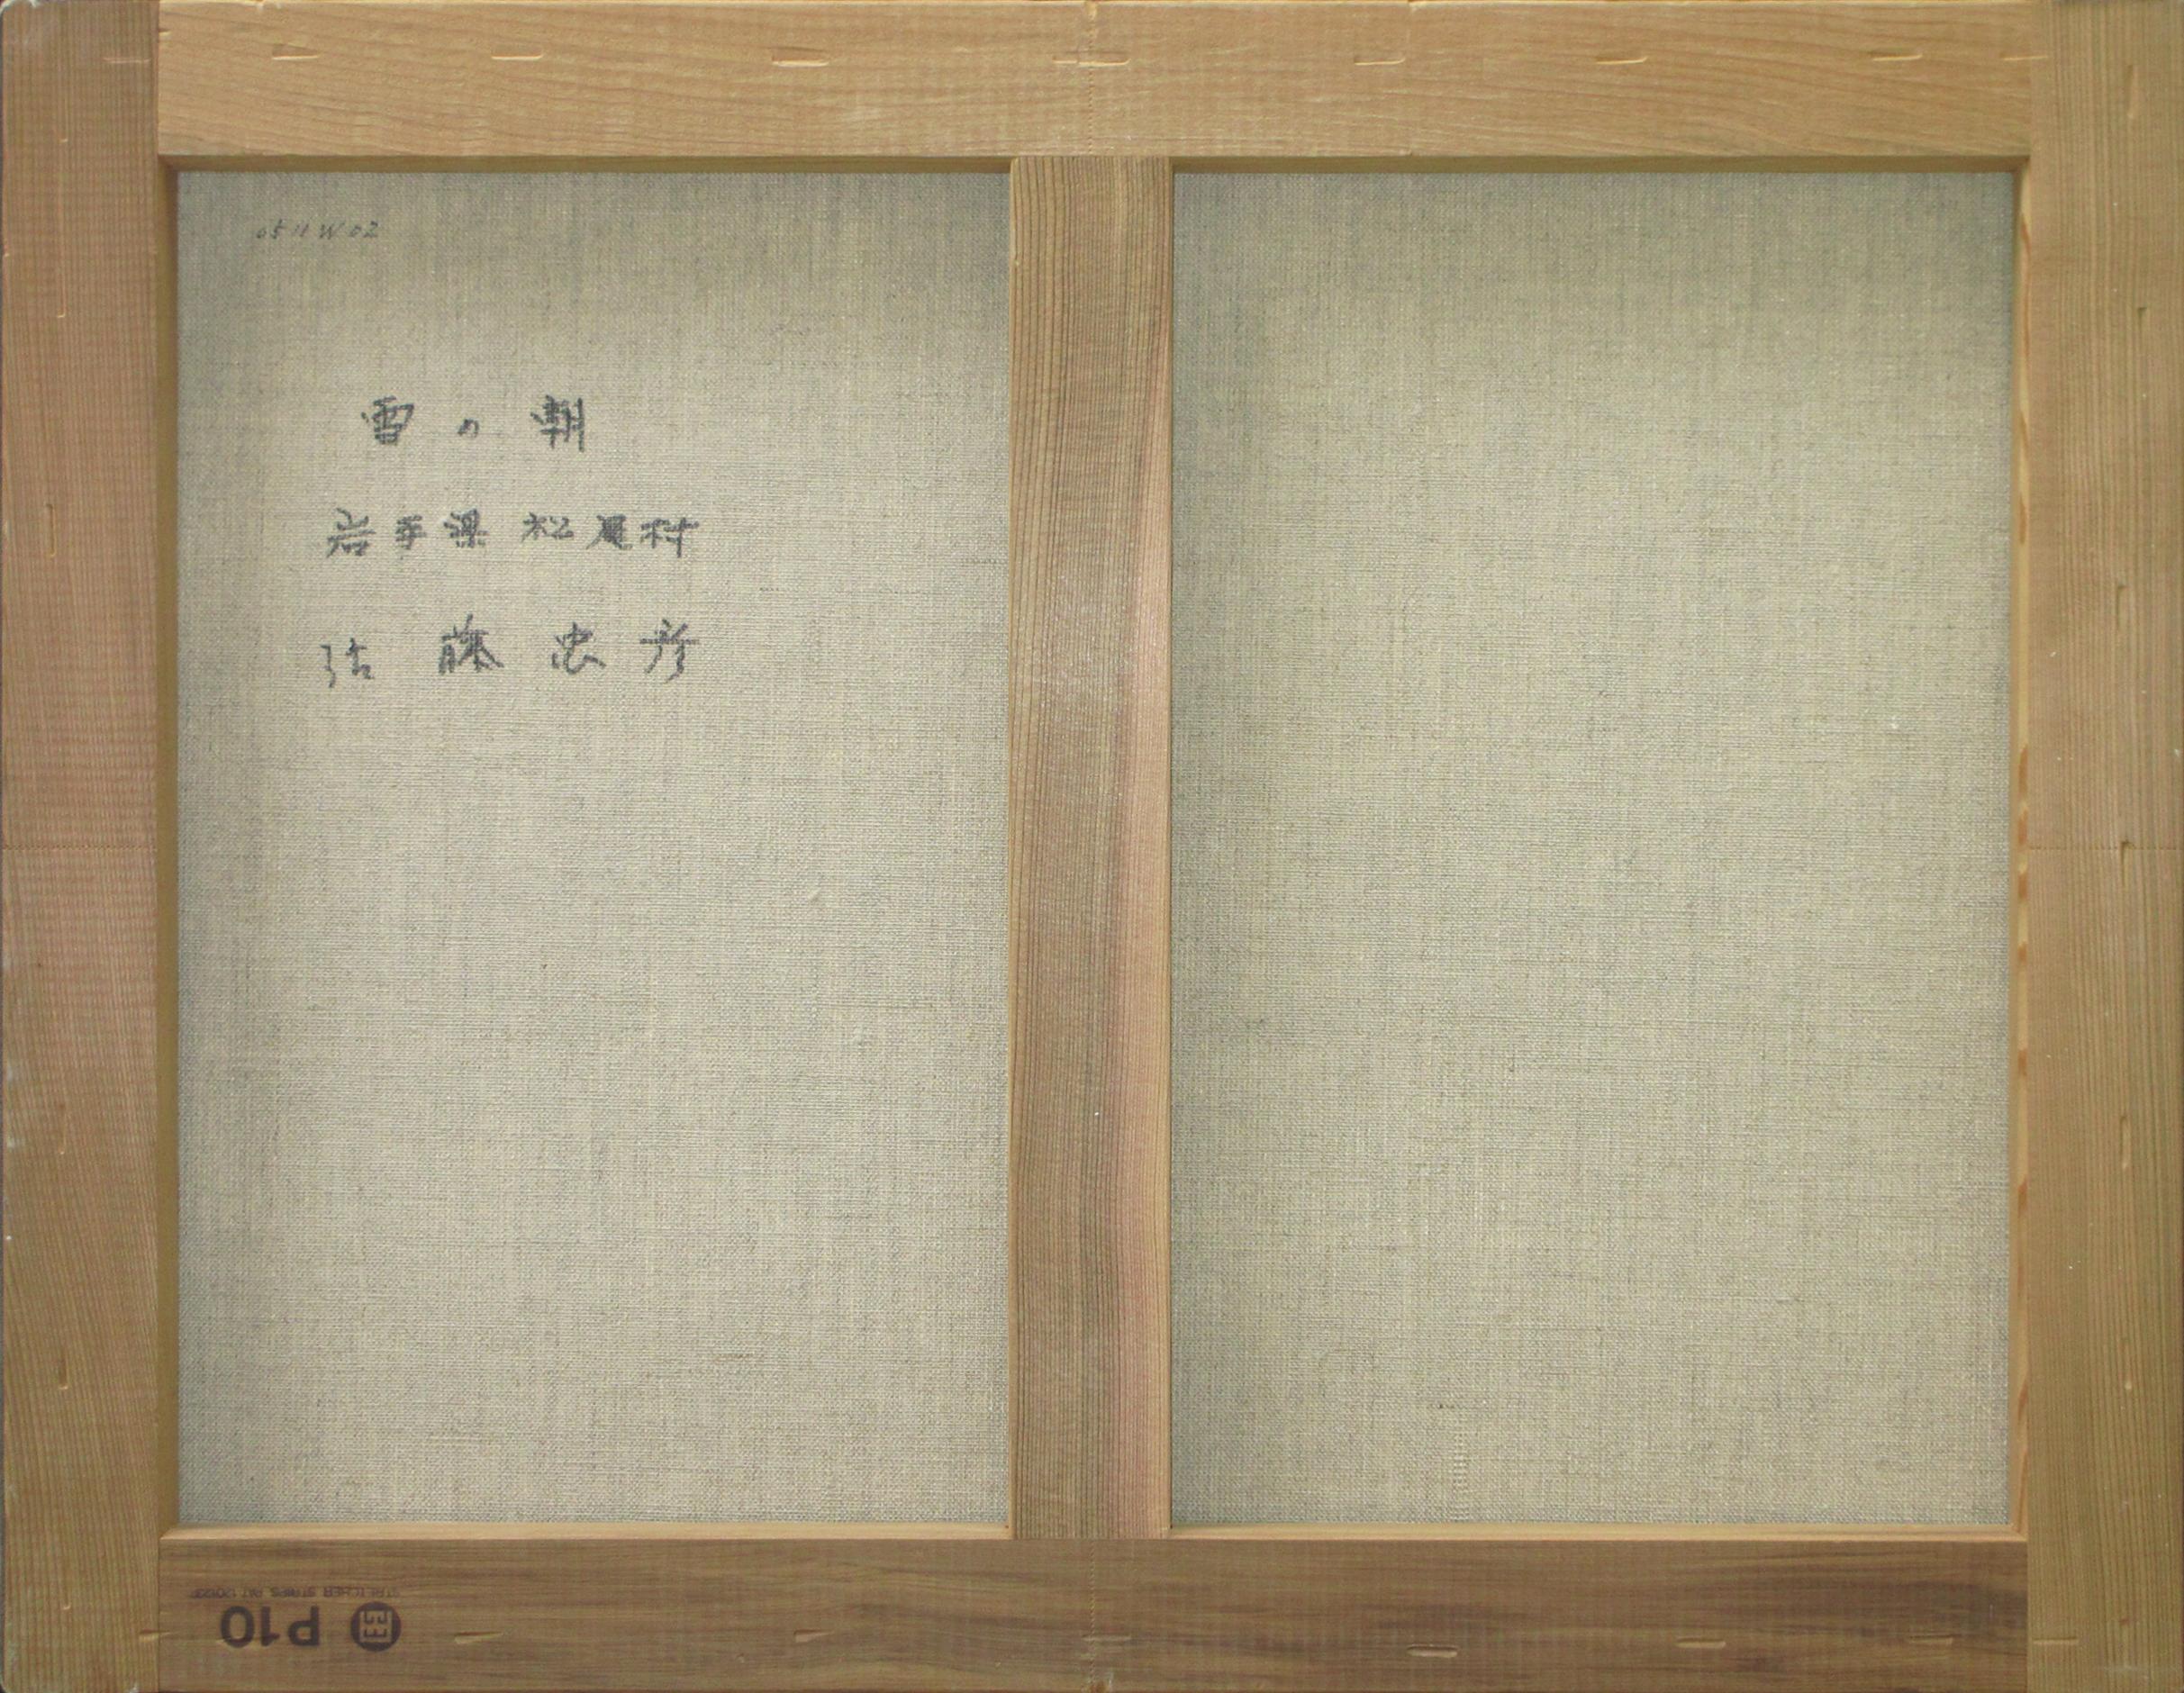 0511W02
雪の朝
岩手県 松尾村
佐藤忠彦
P10
STRETCHER STRIPS PAT.